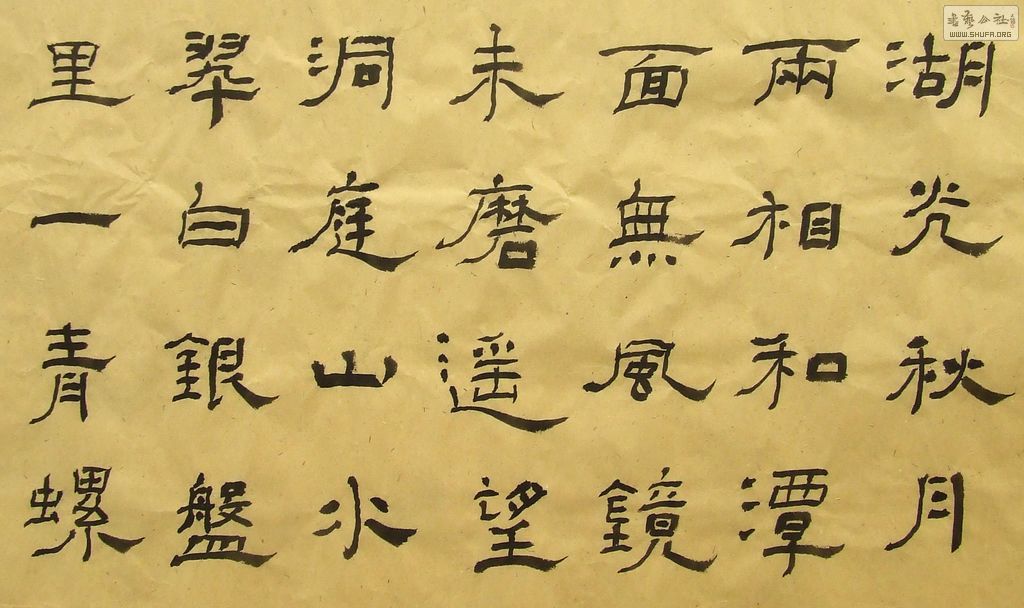 湖光秋月
兩相和潭
面無風鏡
未磨遥望
洞庭山水
翠白銀盤
里一青螺
書藝公社
WWW.SHUFA.ORG